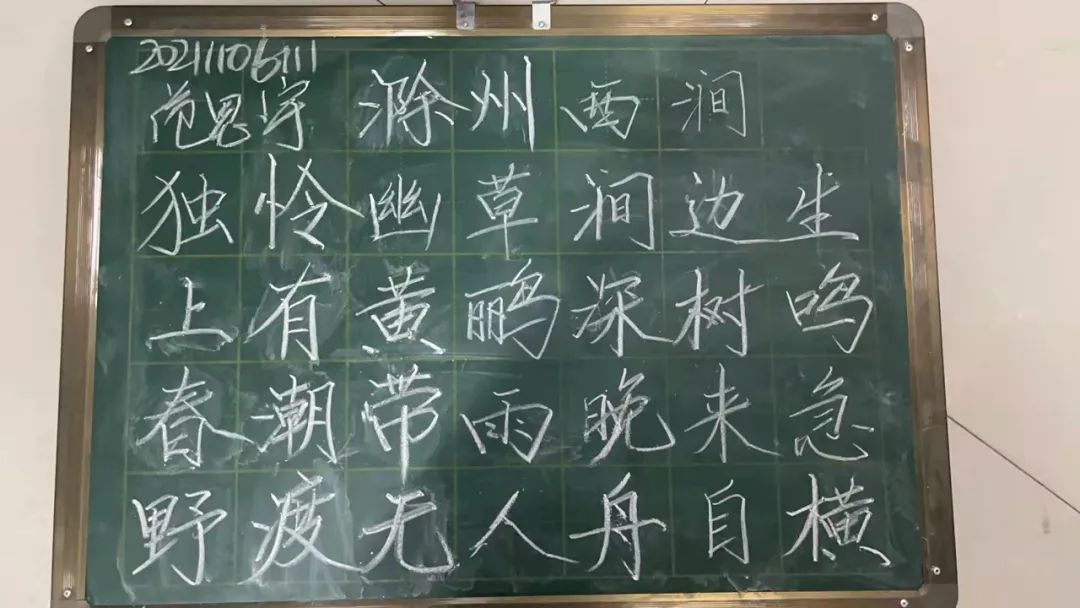 20211106111
范思宇 滁州西涧
独怜幽草涧边生
上有黄鹂深树鸣
春潮带雨晚来急
野渡无人舟自横